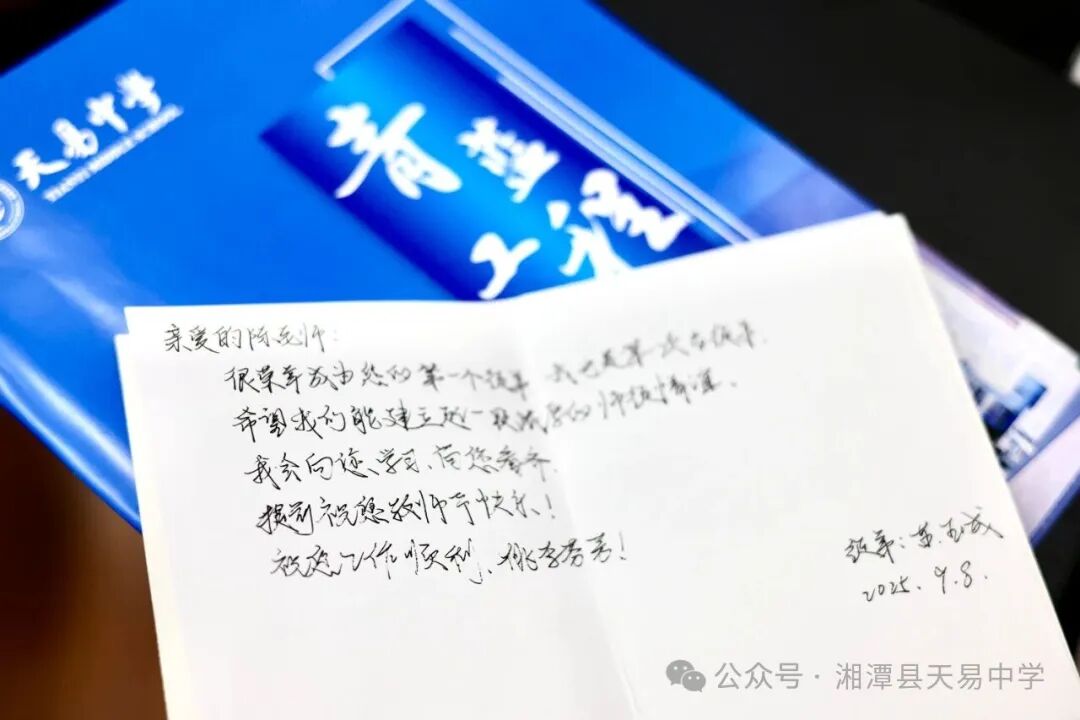 天易中学
TIANYI MIDDLE SCHOOL
青蓝
工程
亲爱的陈老师:
很荣幸成为您的第一个徒弟 我也是第一次当徒弟.
希望我们能建立起一段深厚的师徒情谊.
我会向您学习、向您看齐.
提前祝您教师节快乐!
祝您工作顺利、桃李芬芳!
徒弟:
2025.9.8.
公众号·湘潭县天易中学